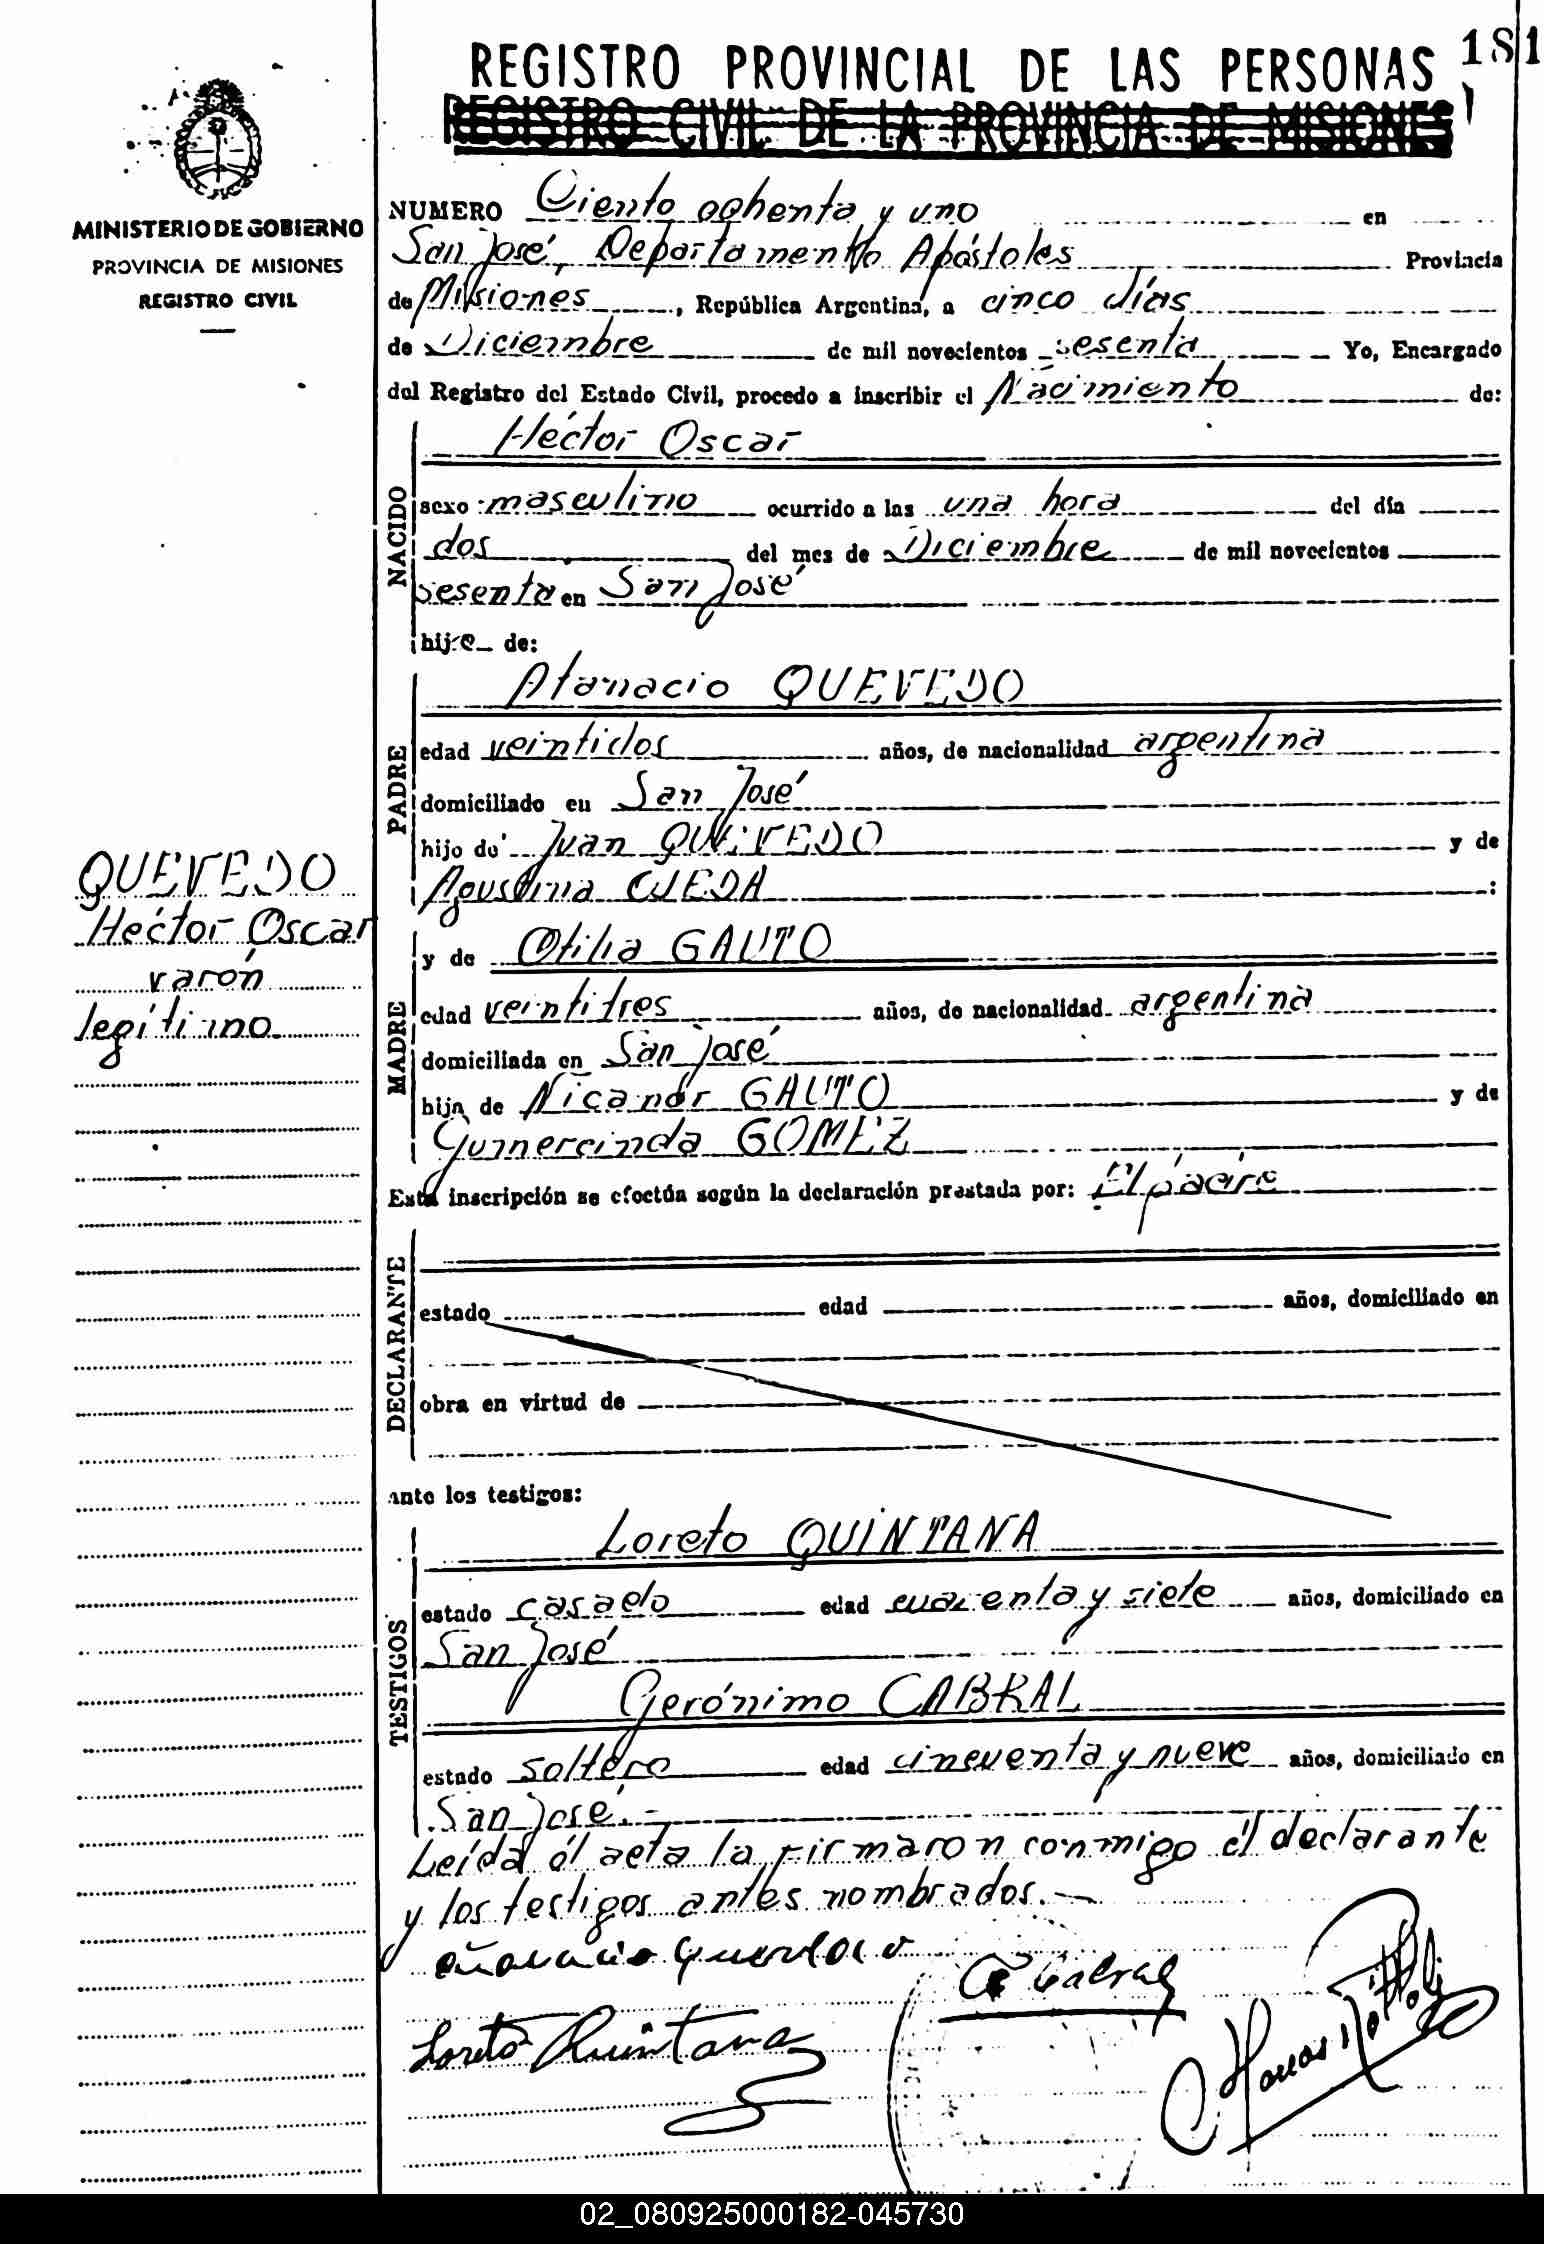 181
REGISTRO PROVINCIAL DE LAS PERSONAS
REGISTRO CIVIL DE LA PROVINCIA DE MISIONES
MINISTERIO DE GOBIERNO
PROVINCIA DE MISIONES
REGISTRO CIVIL
NUMERO Ciento ochenta y uno en
San José, Departamento Apóstoles Provincia
de Misiones, República Argentina, a cinco días
de Diciembre de mil novecientos sesenta Yo, Encargado
del Registro del Estado Civil, procedo a inscribir el Nacimiento de:
NACIDO
Héctor Oscar
sexo masculino ocurrido a las una hora del día
dos del mes de Diciembre de mil novecientos
sesenta en San José
hijo de:
PADRE
Atanacio QUEVEDO
edad veintidos años, de nacionalidad argentina
domiciliado en San José
hijo de Juan QUEVEDO y de
Agustina OJEDA :
MADRE
y de Otilia GAUTO
edad veintitres años, de nacionalidad argentina
domiciliada en San José
hija de Nicanor GAUTO y de
Gumercinda GOMEZ
QUEVEDO
Héctor Oscar
varón
legítimo.
Esta inscripción se efectúa según la declaración prestada por: El padre
DECLARANTE
estado edad años, domiciliado en
obra en virtud de
ante los testigos:
TESTIGOS
Loreto QUINTANA
estado casado edad cuarenta y siete años, domiciliado en
San José
Gerónimo CABRAL
estado soltero edad cincuenta y nueve años, domiciliado en
San José.-
Leída el acta la firmaron conmigo el declarante
y los testigos antes nombrados.-
Cabral
Loreto Quintana
02_080925000182-045730